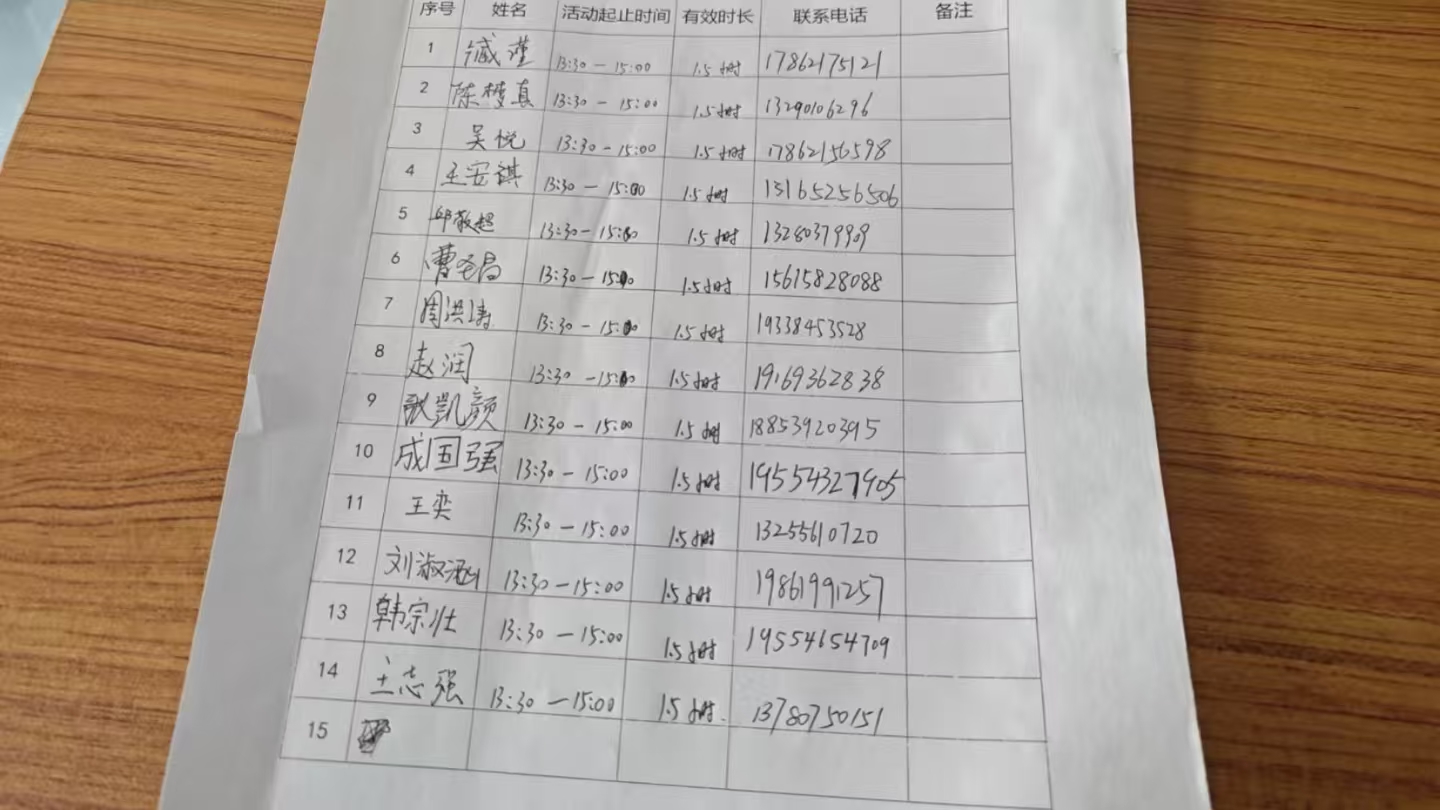 序号 姓名 活动起止时间 有效时长 联系电话 备注
1 臧瑾 13:30-15:00 1.5小时 17862175121
2 陈楚真 13:30-15:00 1.5小时 13290106296
3 吴悦 13:30-15:00 1.5小时 17862156598
4 王安祺 13:30-15:00 1.5小时 13165256506
5 邱敬超 13:30-15:00 1.5小时 13280379909
6 曹圣昌 13:30-15:00 1.5小时 15615828088
7 周洪涛 13:30-15:00 1.5小时 19338453528
8 赵润 13:30-15:00 1.5小时 19169362838
9 凯颜 13:30-15:00 1.5小时 18853920395
10 成国强 13:30-15:00 1.5小时 19554327905
11 王奕 13:30-15:00 1.5小时 13255610720
12 刘淑涵 13:30-15:00 1.5小时 19861991257
13 韩宗壮 13:30-15:00 1.5小时 19554654709
14 王志强 13:30-15:00 1.5小时 13780750151
15